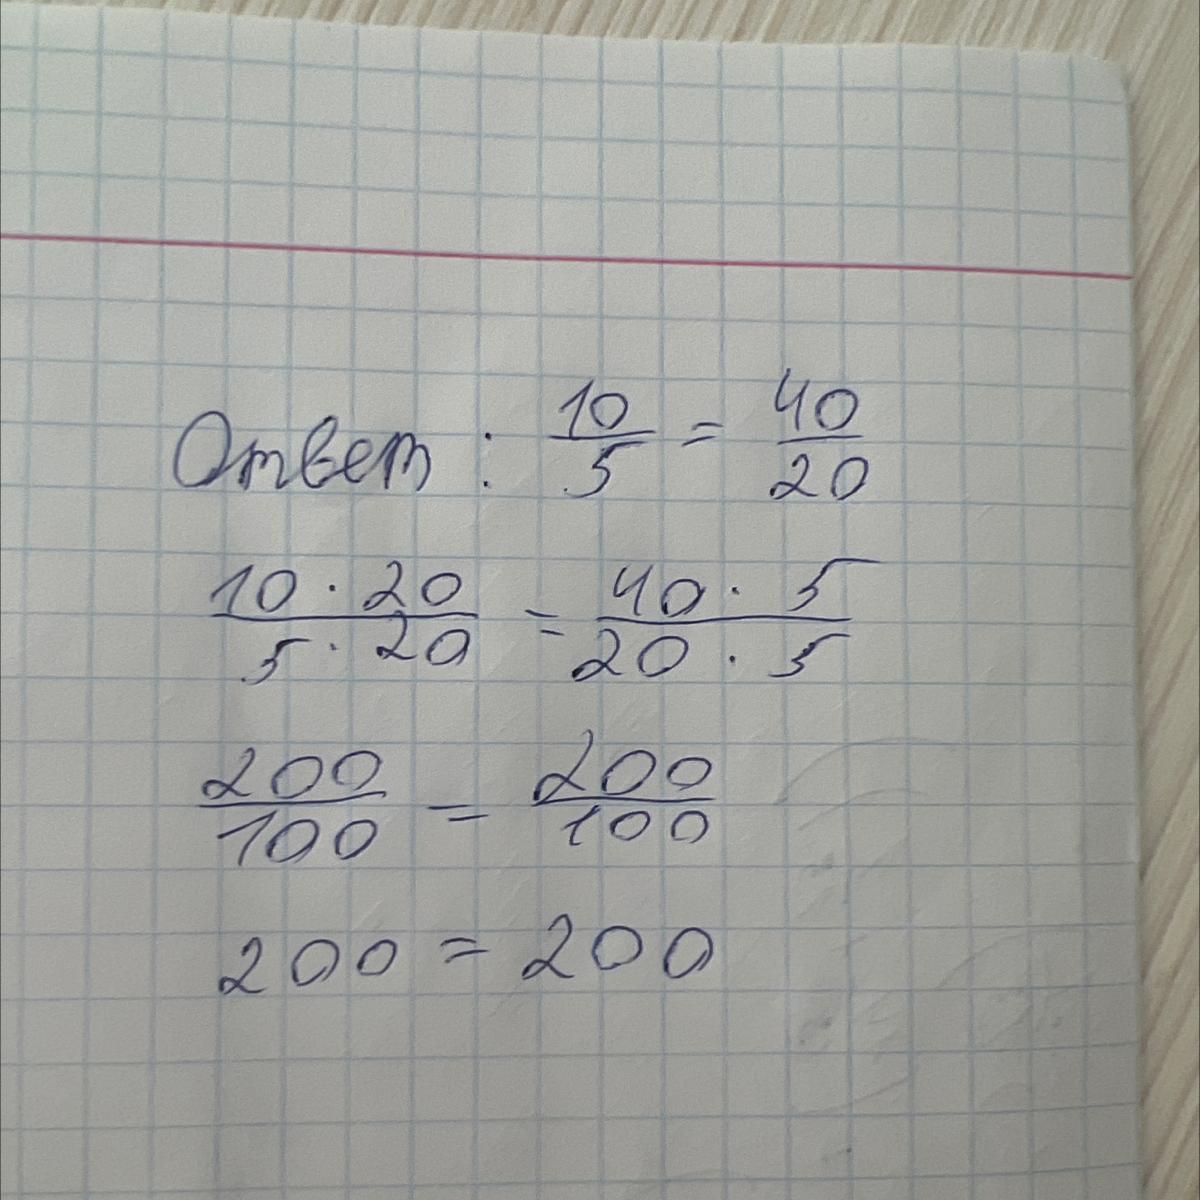 Ответ: 10/5 = 40/20
10 · 20 / 5 · 20 = 40 · 5 / 20 · 5
200/100 = 200/100
200 = 200